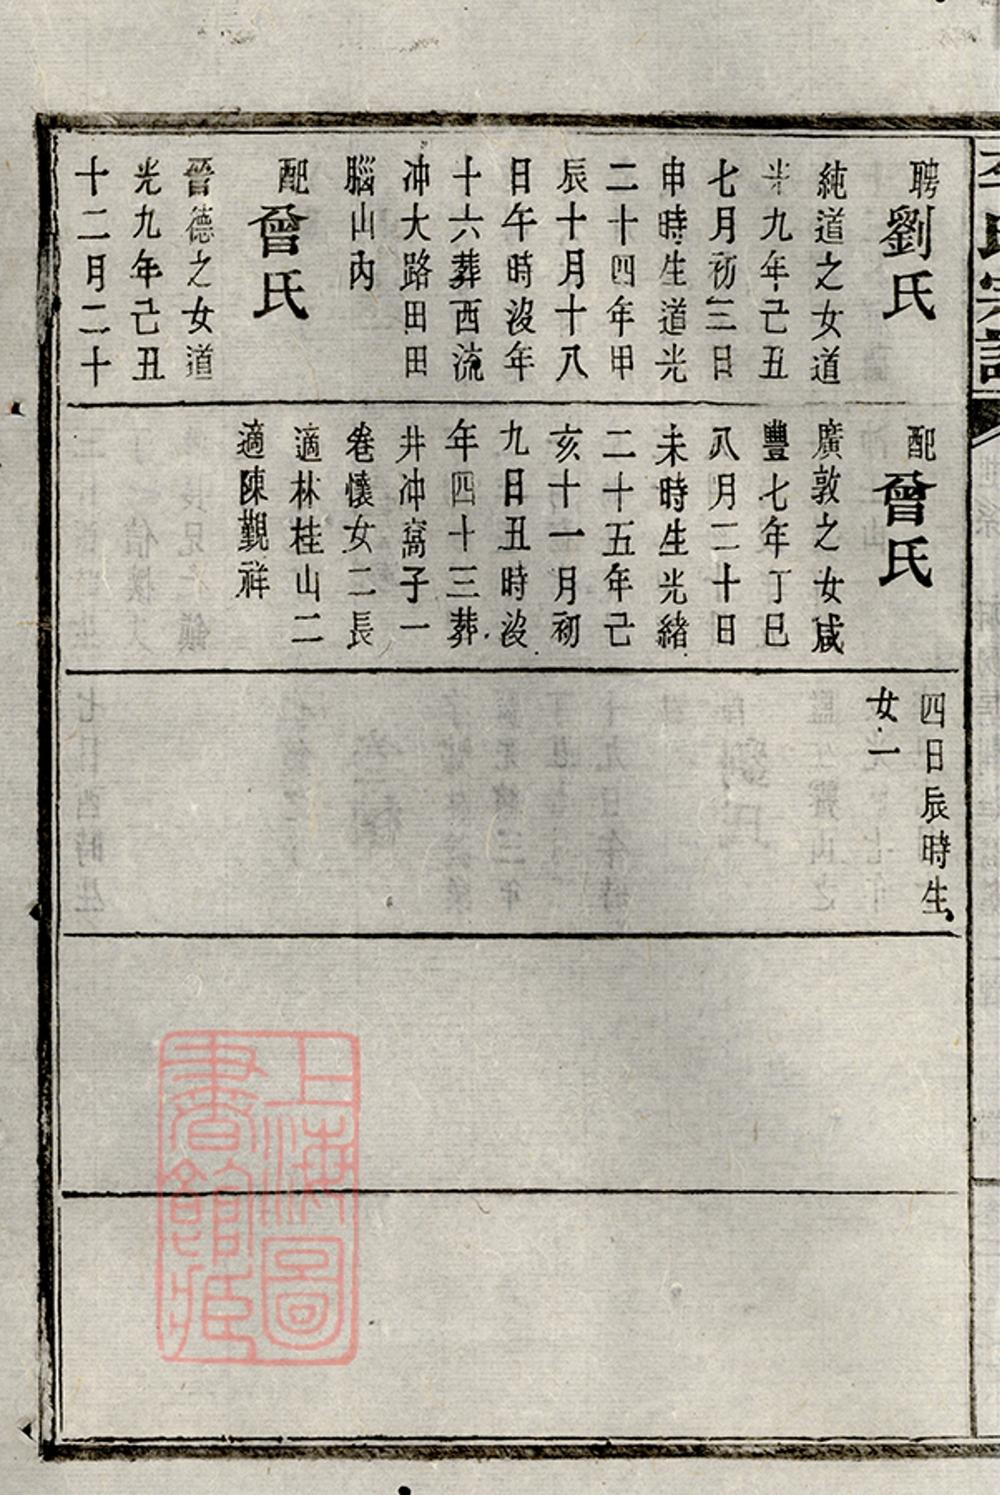 聘劉氏
純道之女道
光九年己丑
七月初三日
申時生道光
二十四年甲
辰十月十八
日午時沒年
十六葬西流
冲大路田田
腦山內
配曾氏
晉德之女道
光九年己丑
十二月二十
配曾氏
廣敦之女咸
豐七年丁巳
八月二十日
未時生光緒
二十五年己
亥十一月初
九日丑時沒
年四十三葬
井冲窩子一
卷懷女二長
適林桂山二
適陳觀祥
四日辰時生
女一
上海圖
書館藏